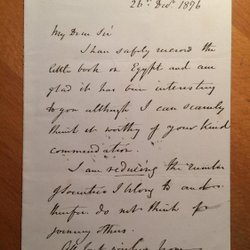 26th Decr 1896
My Dear Sir
I have safely received the
little book on Egypt and am
glad it has been interesting
to you although I can scarcely
think it worthy of your kind
commendation.
I am reducing the number
of Societies I belong to and
therefore do not think of
joining others.